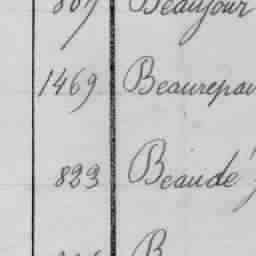 807 Beaujour
1469 Beaurepai
823 Béaudé